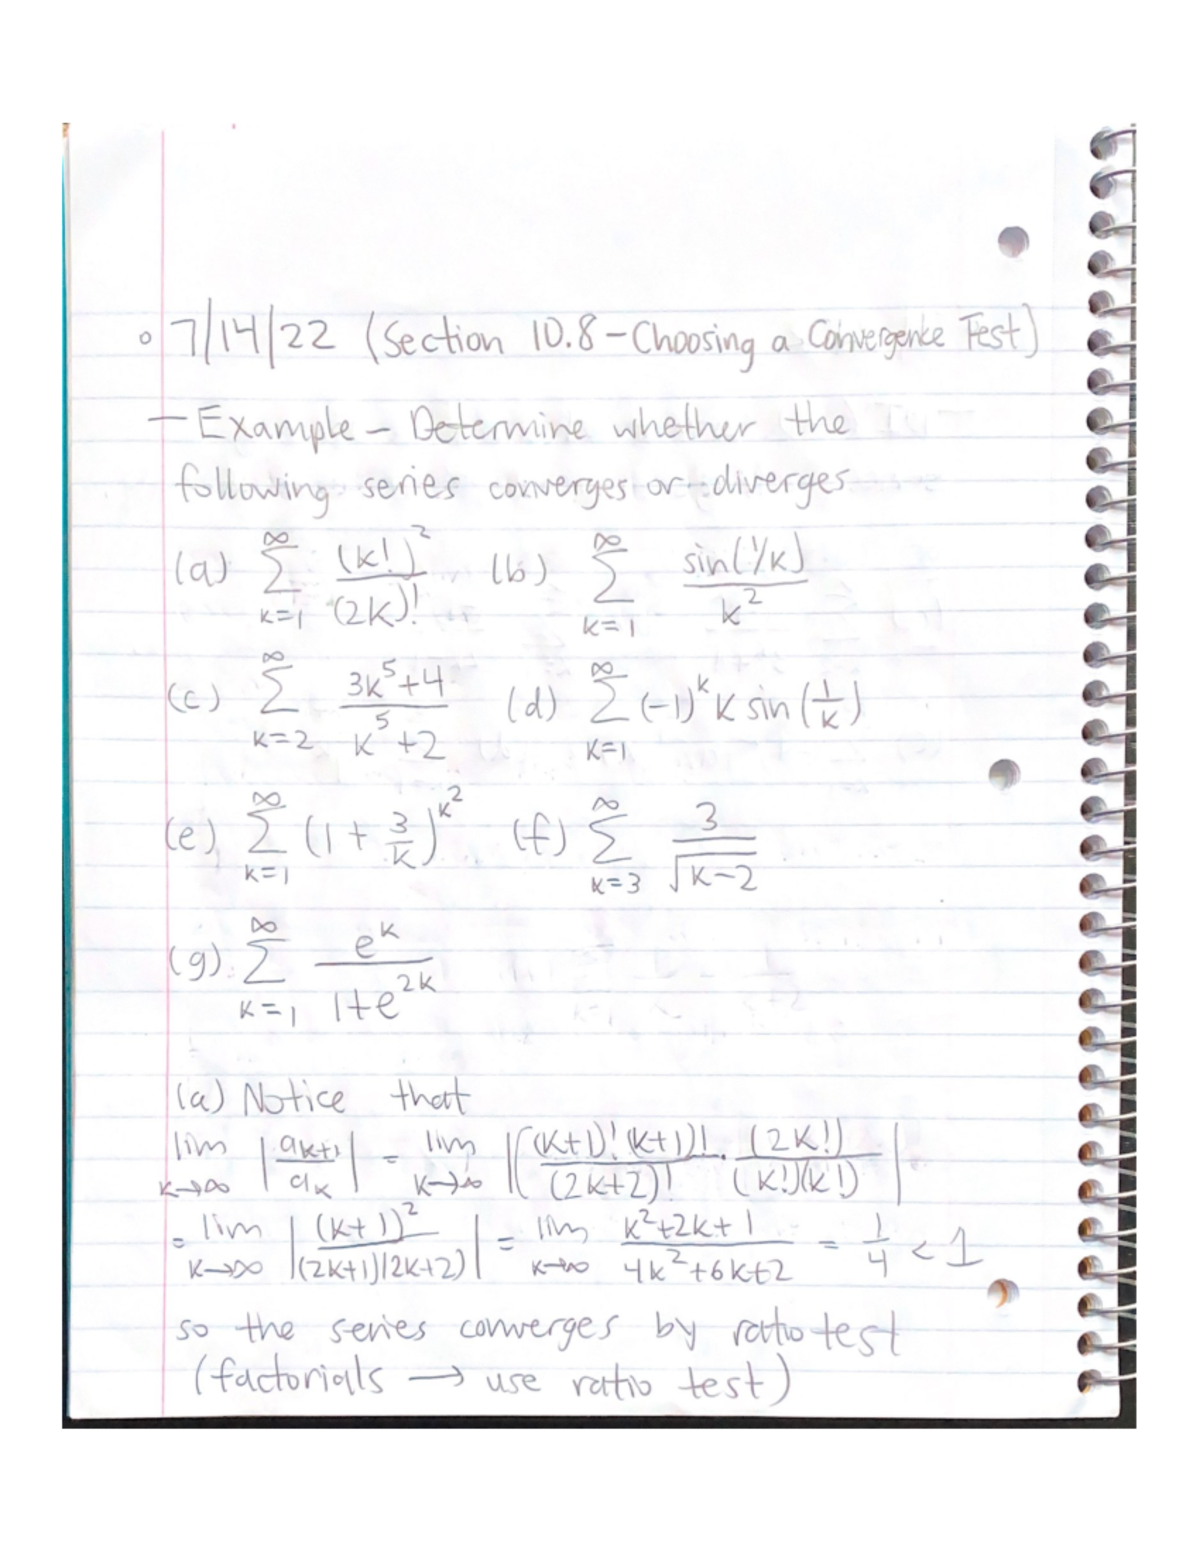 ◦ 7/14/22 (Section 10.8 - Choosing a Convergence Test)
— Example - Determine whether the
following series converges or diverges
(a) ∞∑k=1 (k!)²/(2k)! (b) ∞∑k=1 sin(1/k)/k²
(c) ∞∑k=2 3k⁵+4/k⁵+2 (d) ∞∑k=1 (-1)ᵏ k sin(1/k)
(e) ∞∑k=1 (1+3/k)^k² (f) ∞∑k=3 3/√k-2
(g) ∞∑k=1 eᵏ/1+e²ᵏ
(a) Notice that
lim k→∞ |aₖ₊₁/aₖ| = lim k→∞ |((k+1)!(k+1)!/(2k+2)! · (2k!)/(k!)(k!)|
= lim k→∞ |(k+1)²/(2k+1)(2k+2)| = lim k→∞ k²+2k+1/4k²+6k+2 = 1/4 < 1
so the series converges by ratio test
(factorials → use ratio test)